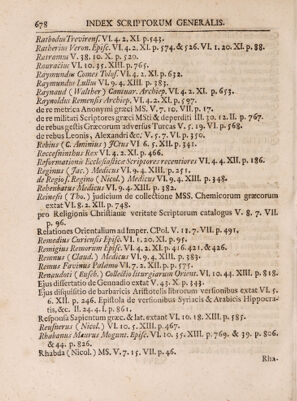 678 INDEX SCRIPTORUM GENERALIS.
Ratbodus Trevirens. VI. 4. 2. XI. p. 543.
Ratherius Veron. Episc. VI. 4. 2. XI. p. 574. & 526. VI. 1, 20. XI. p. 88.
Ratramnus V. 38. 10. X. p. 520.
Rauracius VI. 10. 35. XIII. p. 765.
Raymundus Comes Tolos. VI. 4. 2. XI. p. 632.
Raymundus Lullus VI. 9. 4. XIII. p. 383.
Raynaud (Walther) Cantuar. Archiep. VI. 4. 2. XI. p. 653.
Raynoldus Remensis Archiep. VI. 4. 2. XI. p. 597.
de re metrica Anonymi græci MS. V. 7. 10. VII. p. 17.
de re militari Scriptores græci MSti & deperditi III. 30. 12. II. p. 767.
de rebus gestis Græcorum adversus Turcas V. 5. 19. VI. p. 568.
de rebus Leonis, Alexandri &c. V. 5. 7. VI. p. 350.
Rebius (C. Aminius) JCtus VI. 6. 5. XII. p. 341.
Reccesuinthus Rex VI. 4. 2. XI. p. 466.
Reformationis Ecclesiasticæ Scriptores recentiores VI. 4. 4. XII. p. 186.
Reginus (Jac.) Medicus VI. 9. 4. XIII. p. 251.
de Regio s. Regino (Nicol.) Medicus VI. 9. 4. XIII. p. 348.
Rehenbatus Medicus VI. 9. 4. XIII. p. 382.
Reinesii (Tho.) judicium de collectione MSS. Chemicorum græcorum
extat VI. 8. 2. XII. p. 748.
pro Religionis Christianæ veritate Scriptorum catalogus V. 8. 7. VII.
p. 96.
Relationes Orientalium ad Imper. CPol. V. 11. 7. VII. p. 491,
Remedius Curiensis Episc. VI. 1, 20. XI. p. 95.
Remigius Remorum Episc. VI. 4. 2. XI. p. 416. 421. & 426.
Remnus (Claud.) Medicus VI. 9. 4. XIII. p. 383.
Remus Favinus Palæmo VI. 7. 2. XII. p. 575.
Renaudoti (Euseb.) Collectio liturgiarum Orient. VI. 10. 44. XIII. p. 818.
Ejus dissertatio de Gennadio extat V. 43. X. p. 343.
Ejus disquisitio de barbaricis Aristotelis librorum versionibus extat VI. 5.
6. XII. p. 246. Epistola de versionibus Syriacis & Arabicis Hippocra-
tis, &c. II. 24. 4. I. p. 861.
Responsa Sapientum græc. & lat. extant VI. 10. 18. XIII. p. 585.
Reusnerus (Nicol.) VI. 10. 5. XIII. p. 467.
Rhabanus Maurus Mogunt. Episc. VI. 10. 35. XIII. p. 769. & 39. p. 806.
& 44. p. 826.
Rhabda (Nicol.) MS. V. 7. 15. VII. p. 46.
Rha-